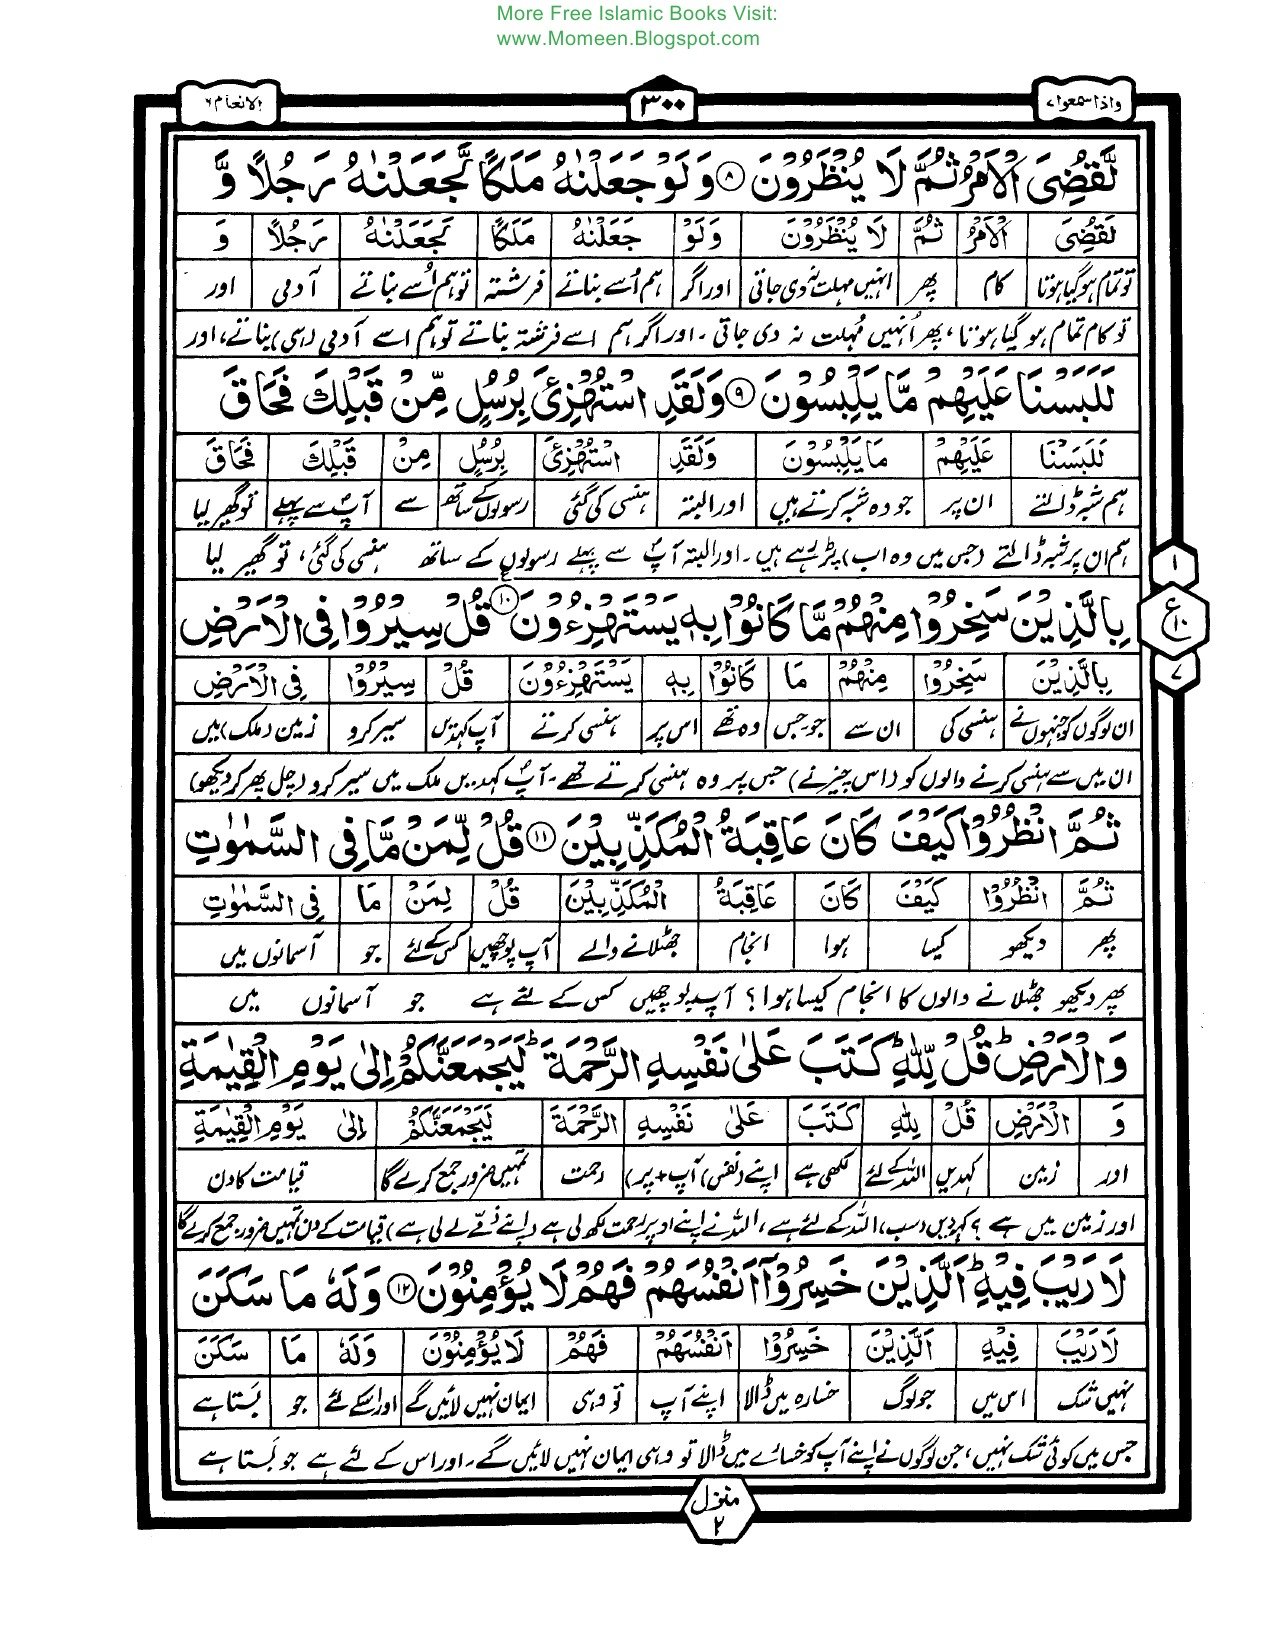 More Free Islamic Books Visit:
www.Momeen.Blogspot.com
واذا سمعوا ٧ ٣٠٠ الانعام ٦
لَّقُضِیَ الْاَمْرُ ثُمَّ لَا یُنْظَرُوْنَ ۝٨ وَلَوْ جَعَلْنٰهُ مَلَكًا لَّجَعَلْنٰهُ رَجُلًا وَّ
لَقُضِیَ الْاَمْرُ ثُمَّ لَا یُنْظَرُوْنَ وَلَوْ جَعَلْنٰهُ مَلَكًا لَّجَعَلْنٰهُ رَجُلًا وَ
تو تمام ہوگیا ہوتا کام پھر انہیں مہلت نہ دی جاتی اور اگر ہم اُسے بناتے فرشتہ تو ہم اُسے بناتے آدمی اور
تو کام تمام ہو گیا ہوتا، پھر اُنہیں مُہلت نہ دی جاتی ۔ اور اگر ہم اسے فرشتہ بناتے تو ہم اسے آدمی (ہی) بناتے، اور
لَلَبَسْنَا عَلَیْهِمْ مَّا یَلْبِسُوْنَ ۝٩ وَلَقَدِ اسْتُهْزِئَ بِرُسُلٍ مِّنْ قَبْلِكَ فَحَاقَ
لَلَبَسْنَا عَلَیْهِمْ مَا یَلْبِسُوْنَ وَلَقَدِ اسْتُهْزِئَ بِرُسُلٍ مِنْ قَبْلِكَ فَحَاقَ
ہم شبہ ڈالتے ان پر جو وہ شبہ کرتے ہیں اور البتہ ہنسی کی گئی رسولوں کے ساتھ سے آپؐ سے پہلے تو گھیر لیا
ہم ان پر شبہ ڈالتے (جس میں وہ اب) پڑ رہے ہیں ۔ اور البتہ آپؐ سے پہلے رسولوں کے ساتھ ہنسی کی گئی، تو گھیر لیا
بِالَّذِیْنَ سَخِرُوْا مِنْهُمْ مَّا كَانُوْا بِهٖ یَسْتَهْزِءُوْنَ ۝١٠ قُلْ سِیْرُوْا فِی الْاَرْضِ
ع
١
١٠
٧
بِالَّذِیْنَ سَخِرُوْا مِنْهُمْ مَا كَانُوْا بِهٖ یَسْتَهْزِءُوْنَ قُلْ سِیْرُوْا فِی الْاَرْضِ
ان لوگوں کو جنہوں نے ہنسی کی ان سے جو۔جس وہ تھے اس پر ہنسی کرتے آپ کہدیں سیر کرو زمین (ملک) میں
ان میں سے ہنسی کرنے والوں کو (اس چیز نے) جس پر وہ ہنسی کرتے تھے ۔ آپؐ کہدیں ملک میں سیر کرو (چل پھر کر دیکھو)
ثُمَّ انْظُرُوْا كَیْفَ كَانَ عَاقِبَةُ الْمُكَذِّبِیْنَ ۝١١ قُلْ لِّمَنْ مَّا فِی السَّمٰوٰتِ
ثُمَّ انْظُرُوْا كَیْفَ كَانَ عَاقِبَةُ الْمُكَذِّبِیْنَ قُلْ لِمَنْ مَا فِی السَّمٰوٰتِ
پھر دیکھو کیسا ہوا انجام جھٹلانے والے آپ پوچھیں کس کے لئے جو آسمانوں میں
پھر دیکھو جھٹلانے والوں کا انجام کیسا ہوا ؟ آپ پوچھیں کس کے لئے ہے جو آسمانوں میں
وَالْاَرْضِ ؕ قُلْ لِّلّٰهِ ؕ كَتَبَ عَلٰی نَفْسِهِ الرَّحْمَةَ ؕ لَیَجْمَعَنَّكُمْ اِلٰی یَوْمِ الْقِیٰمَةِ
وَ الْاَرْضِ قُلْ لِلّٰهِ كَتَبَ عَلٰی نَفْسِهِ الرَّحْمَةَ لَیَجْمَعَنَّكُمْ اِلٰی یَوْمِ الْقِیٰمَةِ
اور زمین کہدیں اللہ کے لئے لکھی ہے اپنے (نفس) آپ + پر) رحمت تمہیں ضرور جمع کرے گا قیامت کا دن
اور زمین میں ہے ؟ کہدیں (سب) اللہ کے لئے ہے، اللہ نے اپنے اوپر رحمت لکھ لی ہے (اپنے ذمّے لے لی ہے) قیامت کے دن تمہیں ضرور جمع کرے گا
لَا رَیْبَ فِیْهِ ؕ اَلَّذِیْنَ خَسِرُوْۤا اَنْفُسَهُمْ فَهُمْ لَا یُؤْمِنُوْنَ ۝١٢ وَلَهٗ مَا سَكَنَ
لَا رَیْبَ فِیْهِ اَلَّذِیْنَ خَسِرُوْا اَنْفُسَهُمْ فَهُمْ لَا یُؤْمِنُوْنَ وَلَهٗ مَا سَكَنَ
نہیں شک اس میں جو لوگ خسارہ میں ڈالا اپنے آپ تو وہی ایمان نہیں لائیں گے اور اسکے لئے جو بَستا ہے
جس میں کوئی شک نہیں، جن لوگوں نے اپنے آپ کو خسارے میں ڈالا تو وہی ایمان نہیں لائیں گے ۔ اور اس کے لئے ہے جو بَستا ہے
منزل
٢